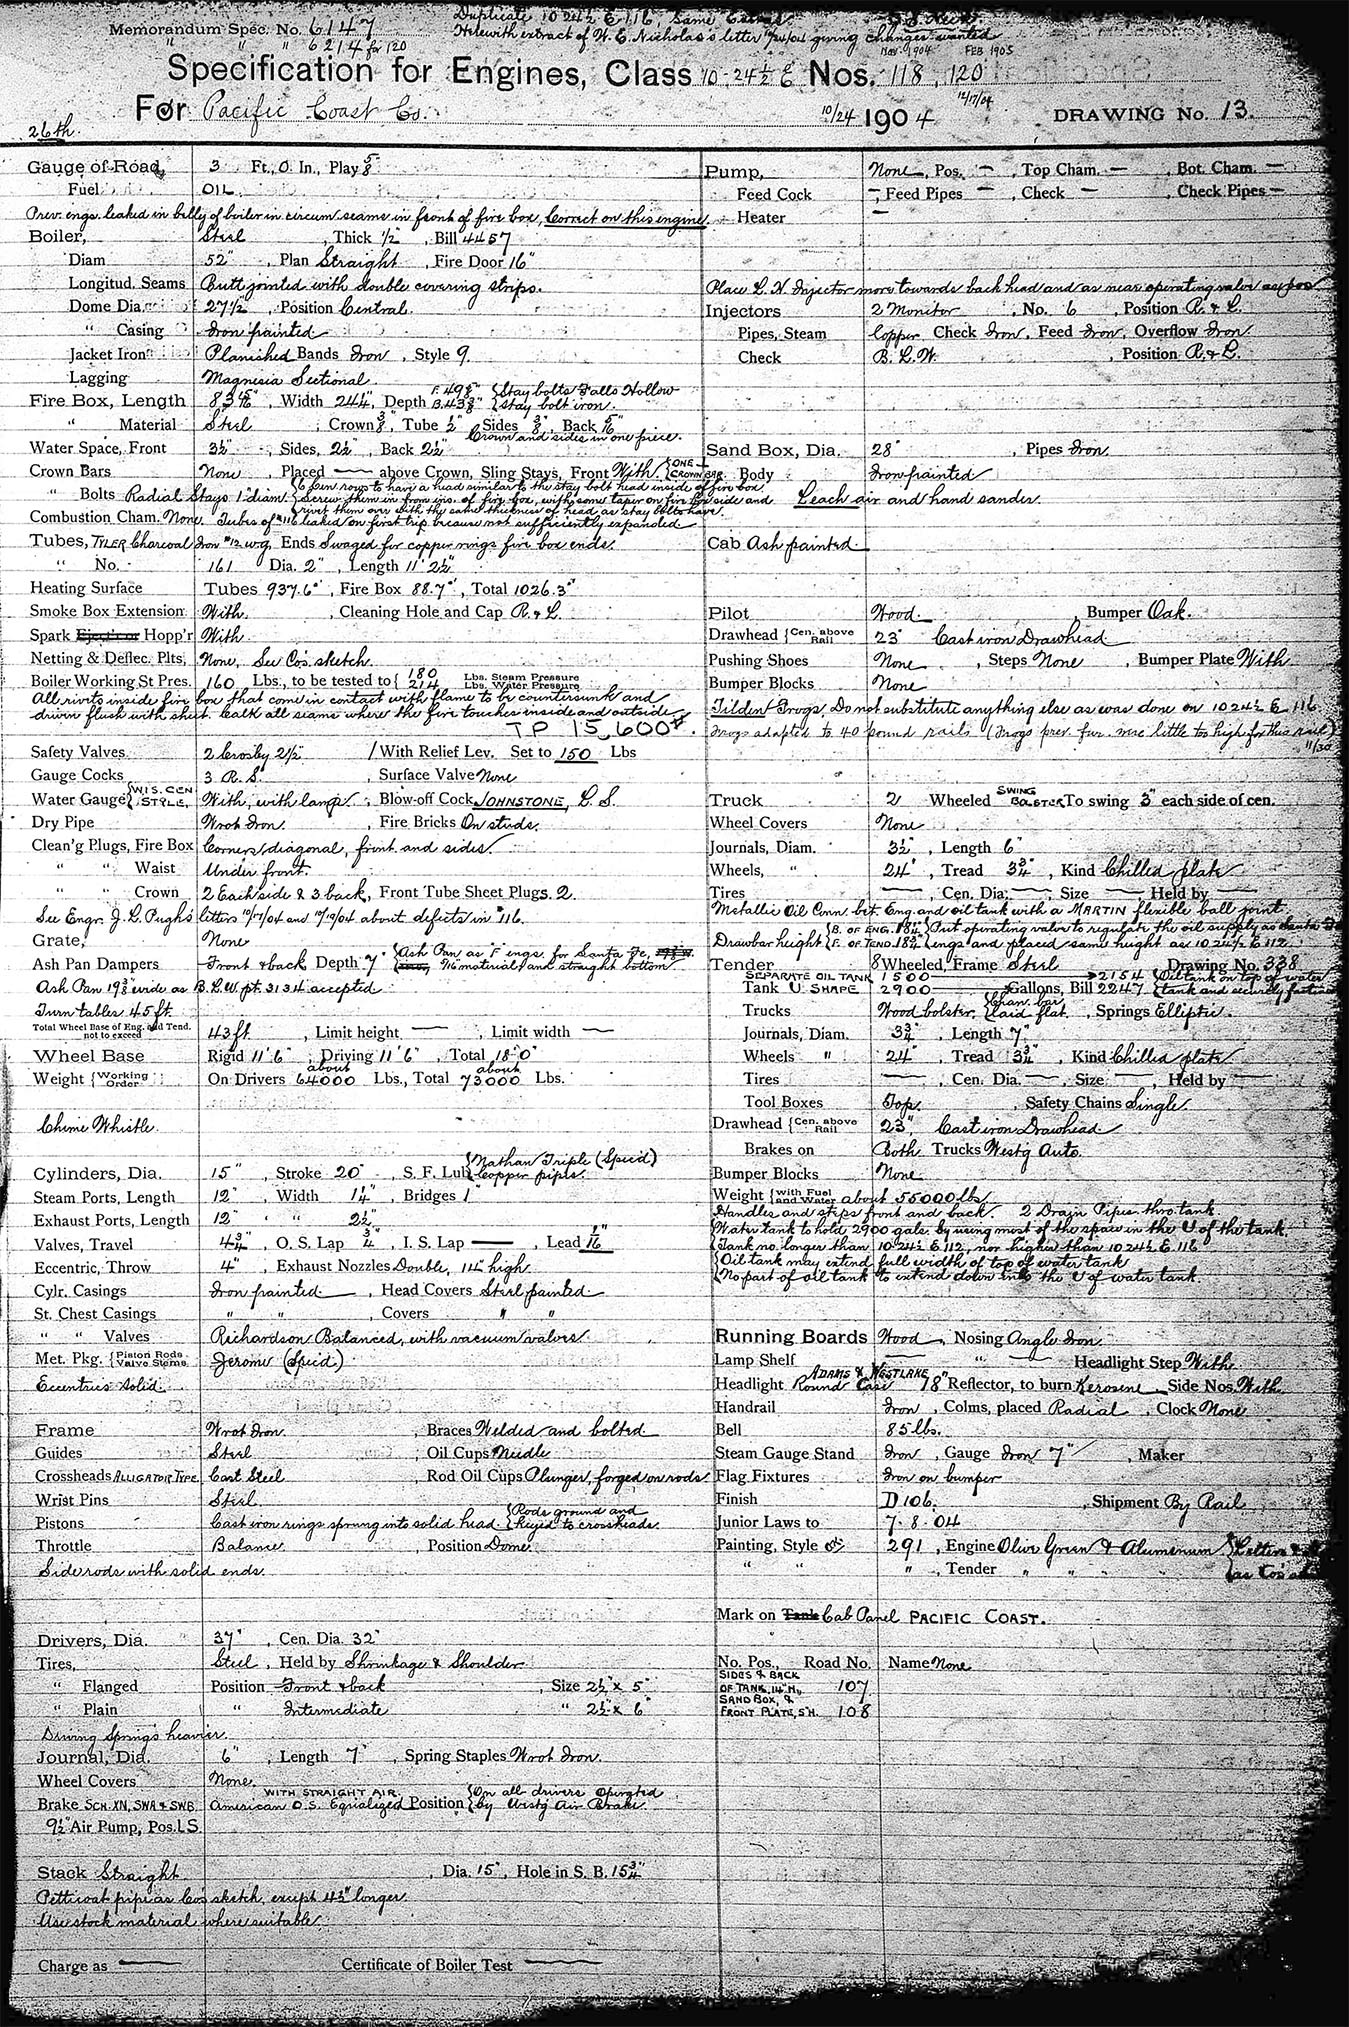 Memorandum Spec. No. 6147
" " " 6214 for 120
Duplicate 10 24½ E 116, Same
Herewith extract of W. E. Nicholas's letter giving changes wanted
Nov. 1904 FEB 1905
Specification for Engines, Class 10-24½ E Nos. 118, 120
12/17/04
For Pacific Coast Co. 10/24 1904 DRAWING No. 13.
26th.
Gauge of Road, 3 Ft., 0 In., Play ⅝"
Fuel OIL
Prev. engs. leaked in belly of boiler in circum. seams in front of fire box, Correct on this engine.
Boiler, Steel, Thick ½", Bill 4457
Diam 52", Plan Straight, Fire Door 16"
Longitud. Seams Butt jointed with double covering strips.
Dome Dia. 27½, Position Central.
" Casing Iron painted
Jacket Iron Planished Bands Iron, Style 9.
Lagging Magnesia Sectional.
Fire Box, Length 83 5/16", Width 24¼", Depth F. 49⅝" B. 43⅜" {Stay bolts Falls Hollow
stay bolt iron.
" Material Steel, Crown ⅜", Tube ½", Sides ⅜", Back 5/16"
Crown and sides in one piece.
Water Space, Front 3½", Sides, 2½", Back 2½"
Crown Bars None, Placed — above Crown, Sling Stays, Front With {ONE T CROWN BAR
" Bolts Radial Stays 1" diam {6 cen rows to have a head similar to the stay bolt head inside of fire box
Screw them in from ins. of fire box, with some taper on fire box side and
rivet them over with the same thickness of head as stay bolts have.
Combustion Cham. None. Tubes of #116 leaked on first trip because not sufficiently expanded
Tubes, TYLER Charcoal Iron #12 w.g. Ends Swaged for copper rings fire box ends.
" No. 161 Dia. 2", Length 11' 2½"
Heating Surface Tubes 937.6, Fire Box 88.7, Total 1026.3
Smoke Box Extension With, Cleaning Hole and Cap R. & L.
Spark Ejector Hopp'r With
Netting & Deflec. Plts, None. See Co's. sketch
Boiler Working St Pres. 160 Lbs., to be tested to {180 Lbs. Steam Pressure
214 Lbs. Water Pressure
All rivets inside fire box that come in contact with flame to be countersunk and
driven flush with sheet. Calk all seams where the fire touches inside and outside
T P 15,600#.
Safety Valves 2 Crosby 2½", 1 With Relief Lev. Set to 150 Lbs
Gauge Cocks 3 R. S., Surface Valve None
Water Gauge {WIS. CEN STYLE, With, with lamp, Blow-off Cock JOHNSTONE, L. S.
Dry Pipe Wrot Iron., Fire Bricks On studs.
Clean'g Plugs, Fire Box Corners, diagonal, front and sides.
" " Waist Under front.
" " Crown 2 Each side & 3 back, Front Tube Sheet Plugs. 2.
See Engr. J. L. Pugh's letters 10/17/04 and 10/19/04 about defects in #116.
Grate, None
Ash Pan Dampers Front & back Depth 7" {Ash Pan as "F" engs. for Santa Fe,
material and straight bottom
Ash Pan 19⅜" wide as B. L. W. pt. 3134 accepted
Turn tables 45 ft.
Total Wheel Base of Eng. and Tend. not to exceed 43 ft., Limit height —, Limit width —
Wheel Base Rigid 11' 6", Driving 11' 6", Total 18'-0"
Weight {Working Order On Drivers about 64000 Lbs., Total about 73000 Lbs.
Chime Whistle.
Cylinders, Dia. 15", Stroke 20", S. F. Lub {Nathan Triple (Spec'd)
Copper pipes.
Steam Ports, Length 12", Width 1¼", Bridges 1"
Exhaust Ports, Length 12" " " 2½"
Valves, Travel 4¾", O. S. Lap ¾", I. S. Lap —, Lead 1/16"
Eccentric, Throw 4", Exhaust Nozzles Double, 14" high.
Cylr. Casings Iron painted, Head Covers Steel painted
St. Chest Casings " ", Covers " "
" " Valves Richardson Balanced, with vacuum valves
Met. Pkg. {Piston Rods Valve Stems Jerome (Spec'd.)
Eccentrics solid.
Frame Wrot Iron, Braces Welded and bolted
Guides Steel, Oil Cups Needle
Crossheads ALLIGATOR TYPE. Cast Steel, Rod Oil Cups Plunger, forged on rods
Wrist Pins Steel.
Pistons Cast iron rings sprung into solid head. {Rods ground and
keyed to crossheads.
Throttle Balance, Position Dome.
Side rods with solid ends.
Drivers, Dia. 37", Cen. Dia. 32"
Tires, Steel, Held by Shrinkage & Shoulder
" Flanged Position Front & back, Size 2½" x 5"
" Plain " Intermediate " 2½" x 6"
Driving Springs heavier.
Journal, Dia. 6", Length 7", Spring Staples Wrot Iron.
Wheel Covers None.
Brake SCH. XN, SWA & SWB. WITH STRAIGHT AIR American O. S. Equalized Position {On all drivers Operated
by Westg Air Brake.
9½" Air Pump, Pos. L S.
Stack Straight, Dia. 15", Hole in S. B. 15¾"
Petticoat pipe as Co's sketch, except 4½" longer.
Use stock material where suitable.
Charge as — Certificate of Boiler Test —
Pump, None, Pos. —, Top Cham. —, Bot. Cham. —
Feed Cock —, Feed Pipes —, Check —, Check Pipes —
Heater —
Place L. H. Injector more towards back head and as near operating valve as pos
Injectors 2 Monitor, No. 6, Position R. & L.
Pipes, Steam Copper Check Iron, Feed Iron, Overflow Iron.
Check B. L. W., Position R. & L.
Sand Box, Dia. 28", Pipes Iron.
" Body Iron painted
Leach air and hand sander.
Cab Ash painted
Pilot Wood, Bumper Oak.
Drawhead {Cen. above Rail 23" Cast iron Drawhead
Pushing Shoes None, Steps None, Bumper Plate With
Bumper Blocks None
Tilden Frogs, Do not substitute anything else as was done on 10 24½ E 116
Frogs adapted to 40 pound rails (Frogs prev. fur. were little too high for this rail)
11/30
Truck 2 Wheeled SWING BOLSTER To swing 3" each side of cen.
Wheel Covers None
Journals, Diam. 3½", Length 6"
Wheels, " 24", Tread 3¾", Kind Chilled plate
Tires —, Cen. Dia. —, Size — Held by —
Metallic Oil Conn. bet. Eng. and oil tank with a MARTIN flexible ball joint.
Drawbar height {B. OF ENG. 18¼" F. OF TEND. 18¾" {Put operating valve to regulate the oil supply as
engs and placed same height as 10 24½ E 112
Tender 8 Wheeled, Frame Steel Drawing No. 338
SEPARATE OIL TANK 1500 2154 {Oil tank on top of water
Tank U SHAPE 2900 Gallons, Bill 2247 {tank and securely fastened
Trucks Wood bolster, {Chan. bar laid flat., Springs Elliptic.
Journals, Diam. 3¾", Length 7"
Wheels " 24", Tread 3¾", Kind Chilled plate
Tires —, Cen. Dia. —, Size —, Held by —
Tool Boxes Top., Safety Chains Single.
Drawhead {Cen. above Rail 23", Cast iron Drawhead
Brakes on Both Trucks Westg Auto.
Bumper Blocks None
Weight {with Fuel and Water about 55000 lbs
Handles and steps front and back. 2 Drain Pipes thro. tank.
{Water tank to hold 2900 gals. by using most of the space in the U of the tank.
{Tank no longer than 10 24½ E 112, nor higher than 10 24½ E 116
{Oil tank may extend full width of top of water tank
{No part of oil tank to extend down into the U of water tank.
Running Boards Wood, Nosing Angle Iron
Lamp Shelf — " — Headlight Step With
ADAMS & WESTLAKE
Headlight Round Case 18" Reflector, to burn Kerosene, Side Nos. With
Handrail Iron, Colms, placed Radial, Clock None
Bell 85 lbs.
Steam Gauge Stand Iron, Gauge Iron 7", Maker
Flag Fixtures Iron on bumper
Finish D 106., Shipment By Rail
Junior Laws to 7-8-04
Painting, Style 291, Engine Olive Green & Aluminum {Letters &
" " ", Tender " " " " {as Co's
Mark on Tank Cab Panel PACIFIC COAST.
No. Pos., Road No. Name None
SIDES & BACK
OF TANK, 14" H., 107
SAND BOX, &
FRONT PLATE, 5" H. 108